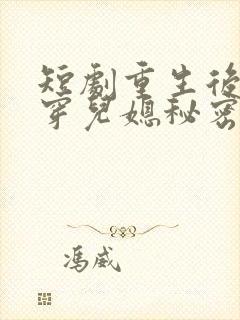 短劇重生後
穿兒媳秘密
馮威